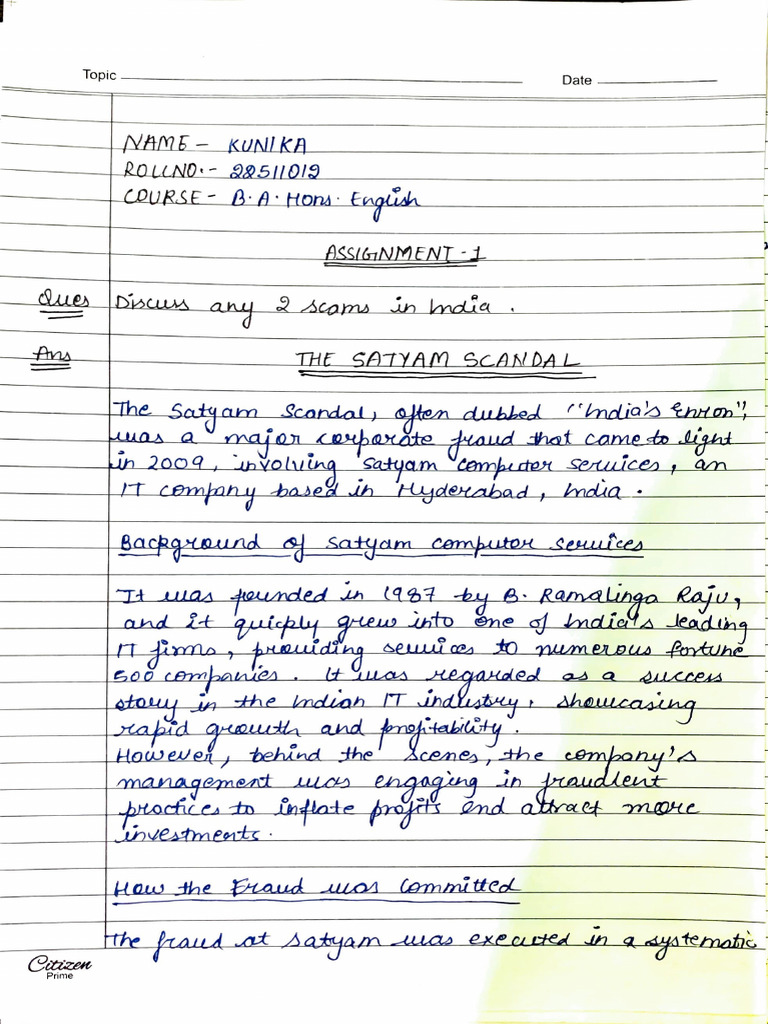 Topic
Date
NAME - KUNIKA
ROLLNO. - 28511012
COURSE - B.A. Hons. English
ASSIGNMENT - 1
Ques Discuss any 2 scams in India.
Ans THE SATYAM SCANDAL
The Satyam Scandal, often dubbed "India's Enron",
was a major corporate fraud that came to light
in 2009, involving satyam computer services, an
IT company based in Hyderabad, India.
Background of satyam computer services
It was founded in 1987 by B. Ramalinga Raju,
and it quickly grew into one of India's leading
IT firms, providing services to numerous fortune
500 companies. It was regarded as a success
story in the Indian IT industry, showcasing
rapid growth and profitability.
However, behind the scenes, the company's
management was engaging in fraudlent
practices to inflate profits end attract more
investments.
How the Fraud was Committed
The fraud at satyam was executed in a systematic
Citizen
Prime